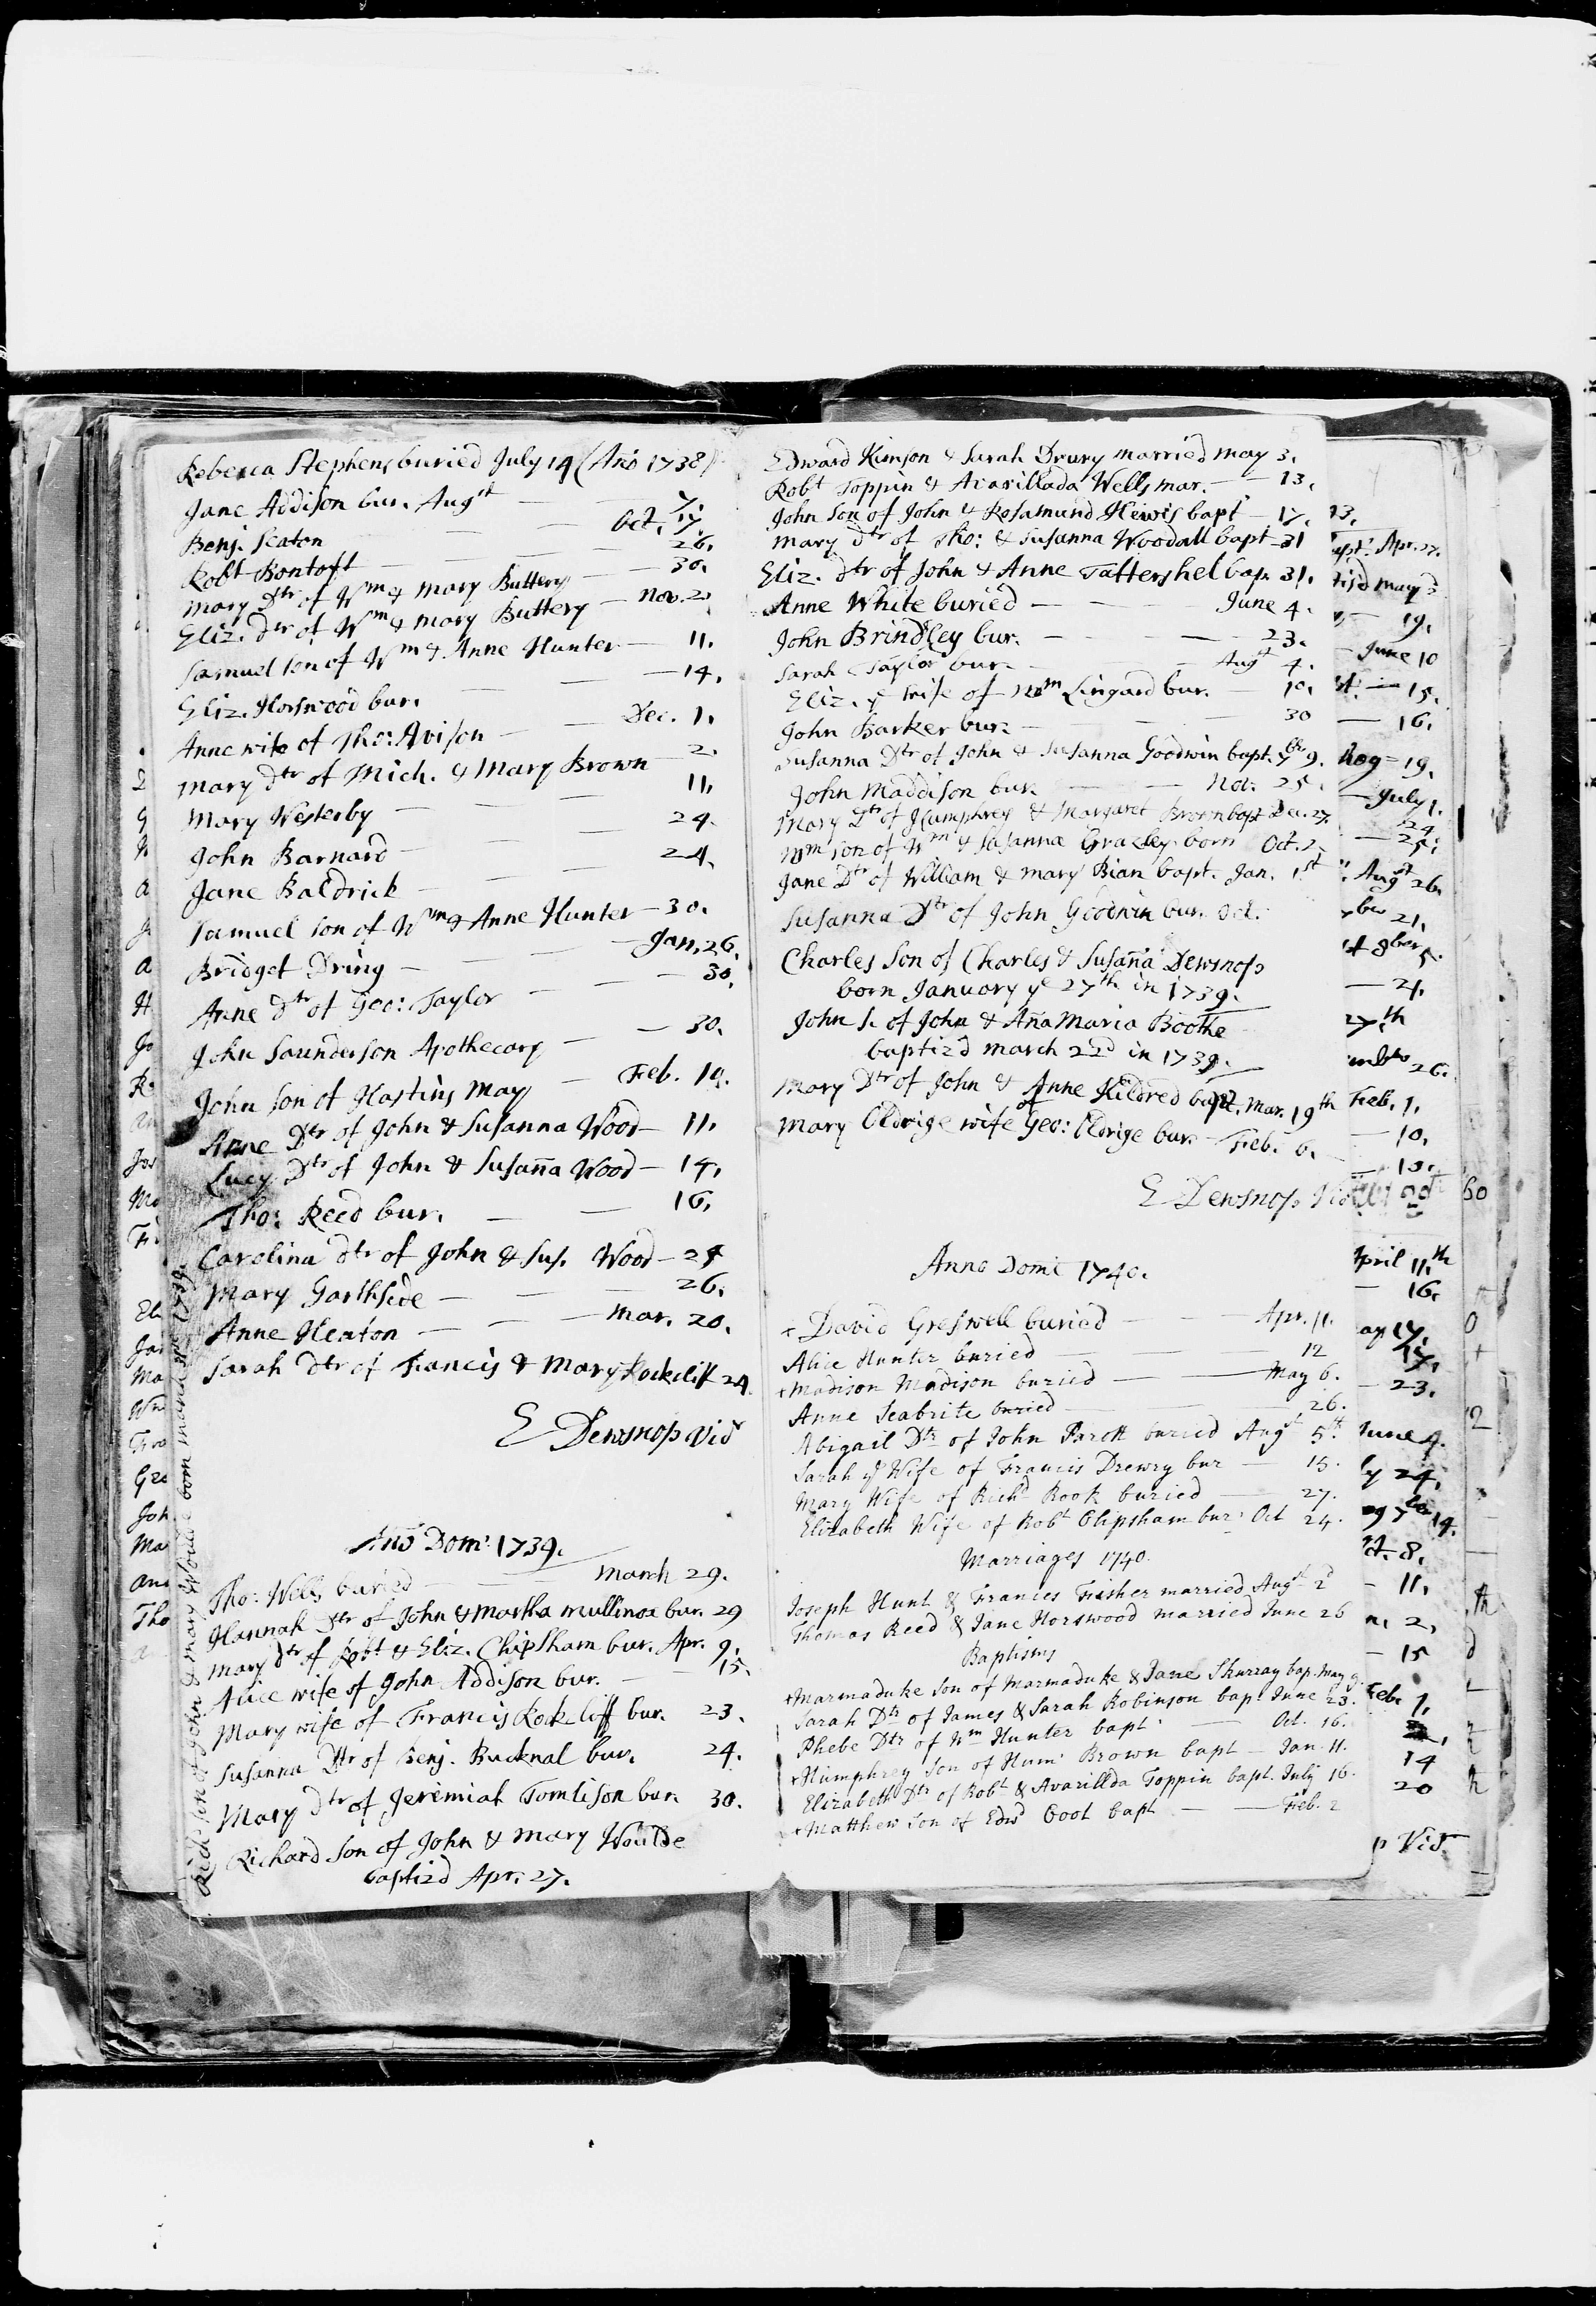 Rebecca Stephens buried July 14 (Ano 1738)
Jane Addison bur. Augst — 7.
Benj. Seaton — Oct. 17.
Robt Bontoft — 26.
Mary Dtr of Wm & Mary Buttery — 30.
Eliz. Dtr of Wm & Mary Buttery — Nov. 2.
Samuel son of Wm & Anne Hunter — 11.
Eliz. Horswood bur. — 14.
Anne wife of Tho: Avison — Dec. 1.
Mary Dtr of Mich. & Mary Brown 2.
Mary Westerby — 11.
John Barnard — 24.
Jane Baldrick — 24.
Samuel son of Wm & Anne Hunter — 30.
Bridget Dring — Jan. 26.
Anne Dtr of Geo: Taylor — 30.
John Saunderson Apothecary — 30.
John son of Hastins May — Feb. 10.
Anne Dtr of John & Susanna Wood — 11.
Lucy Dtr of John & Susana Wood — 14.
Tho: Reed bur. — 16.
Carolina Dtr of John & Sus. Wood — 24
Mary Garthside — 26.
Anne Heaton — Mar. 20.
Sarah Dtr of Francis & Mary Rockcliff 24.
E Dewsnop Vic
Ano Dom: 1739.
Tho: Wells buried — March 29.
Hannah Dtr of John & Martha Mullinox bur. 29
Mary Dtr of Robt & Eliz. Chipsham bur. Apr. 9.
Alice wife of John Addison bur. — 15.
Mary wife of Francis Rockcliff bur. 23.
Susanna Dtr of Benj. Bucknal bur. 24.
Mary Dtr of Jeremiah Tomlison bur. 30.
Richard son of John & Mary Woulde
baptizd Apr. 27.
Rich. son of John & Mary Would born March 1739.
Edward Kimson & Sarah Drury married May 3.
Robt Toppin & Avarillada Wells mar. — 13.
John Son of John & Rosamund Hewis bapt — 17.
Mary Dtr of Tho: & Susanna Woodall bapt — 31
Eliz. Dtr of John & Anne Tattershel bap. 31.
Anne White buried — June 4.
John Brindley bur. — 23.
Sarah Taylor bur. — Augt 4.
Eliz. ye wife of Wm Lingard bur. — 10.
John Barker bur. — 30
Susanna Dtr of John & Susanna Goodwin bapt. 7br 9.
John Maddison bur. — Nov. 25.
Mary Dtr of Humphrey & Margaret Brown bapt Dec. 27.
Wm son of Wm & Susanna Grazley born Oct. 2.
Jane Dtr of William & Mary Bian bapt. Jan. 1st
Susanna Dtr of John Goodwin bur. Oct.
Charles Son of Charles & Susana Dewsnop
born January ye 27th in 1739.
John S. of John & Ana Maria Boothe
baptiz'd March 22d in 1739.
Mary Dtr of John & Anne Kildred bapt. Mar. 19th
Mary Eldrige wife of Geo: Eldrige bur. — Feb. 6.
E Dewsnop Vic
Anno Domi 1740.
+ David Greswell buried — Apr. 11.
Alice Hunter buried — 12
+ Madison Madison buried — May 6.
Anne Seabrite buried — 26.
Abigail Dtr of John Parott buried Augt 5th.
Sarah ye Wife of Francis Drewry bur — 15.
Mary Wife of Richd Rook buried — 27.
Elizabeth Wife of Robt Chipsham bur: Oct 24.
Marriages 1740.
Joseph Hunt & Frances Frisher married Augt 2d
Thomas Reed & Jane Horswood married June 26
Baptisms
+ Marmaduke Son of Marmaduke & Jane Shurray bap. May 9.
Sarah Dtr of James & Sarah Robinson bapt June 23.
Phebe Dtr of Wm Hunter bapt. — Oct. 16.
+ Humphrey Son of Hum: Brown bapt — Jan. 11.
Elizabeth Dtr of Robt & Avarillda Toppin bapt. July 16.
+ Matthew Son of Edwd Coot bapt — Feb. 2
13.
Apr. 27.
May 3
19.
June 10
15.
16.
19.
July 1.
24.
25.
Augst 26.
21.
8ber 5.
21.
27th
26.
Feb. 1.
10.
10.
60
April 11th
16.
17.
17.
23.
June 4.
24.
14.
8.
11.
2.
15
Feb. 1.
14
20
Vic.